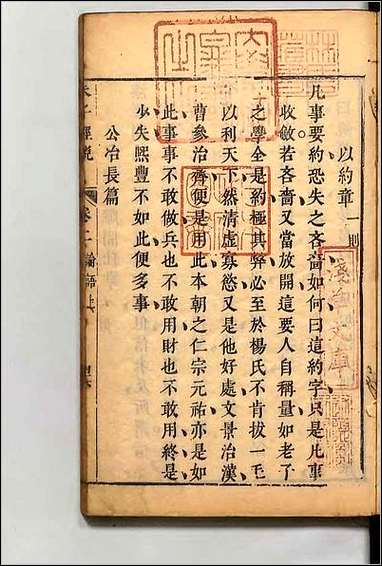 以約章一則
凡事要約恐失之吝嗇如何曰這約字只是凡事
收斂若吝嗇又當放開這要人自稱量如老子
之學全是約極其弊必至於楊氏不肯拔一毛
以利天下然清虛寡慾又是他好處文景治漢
曹參治齊便是用此本朝之仁宗元祐亦是如
此事事不敢做兵也不敢用財也不敢用終是
少失熙豐不如此便多事
公冶長篇
卷二 論語上